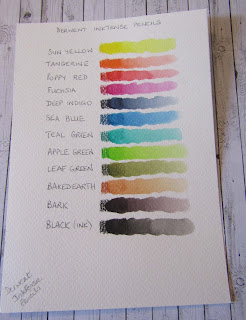 DERWENT INKTENSE PENCILS
SUN YELLOW
TANGERINE
POPPY RED
FUCHSIA
DEEP INDIGO
SEA BLUE
TEAL GREEN
APPLE GREEN
LEAF GREEN
BAKED EARTH
BARK
BLACK (INK)
Derwent
Inktense
Pencils